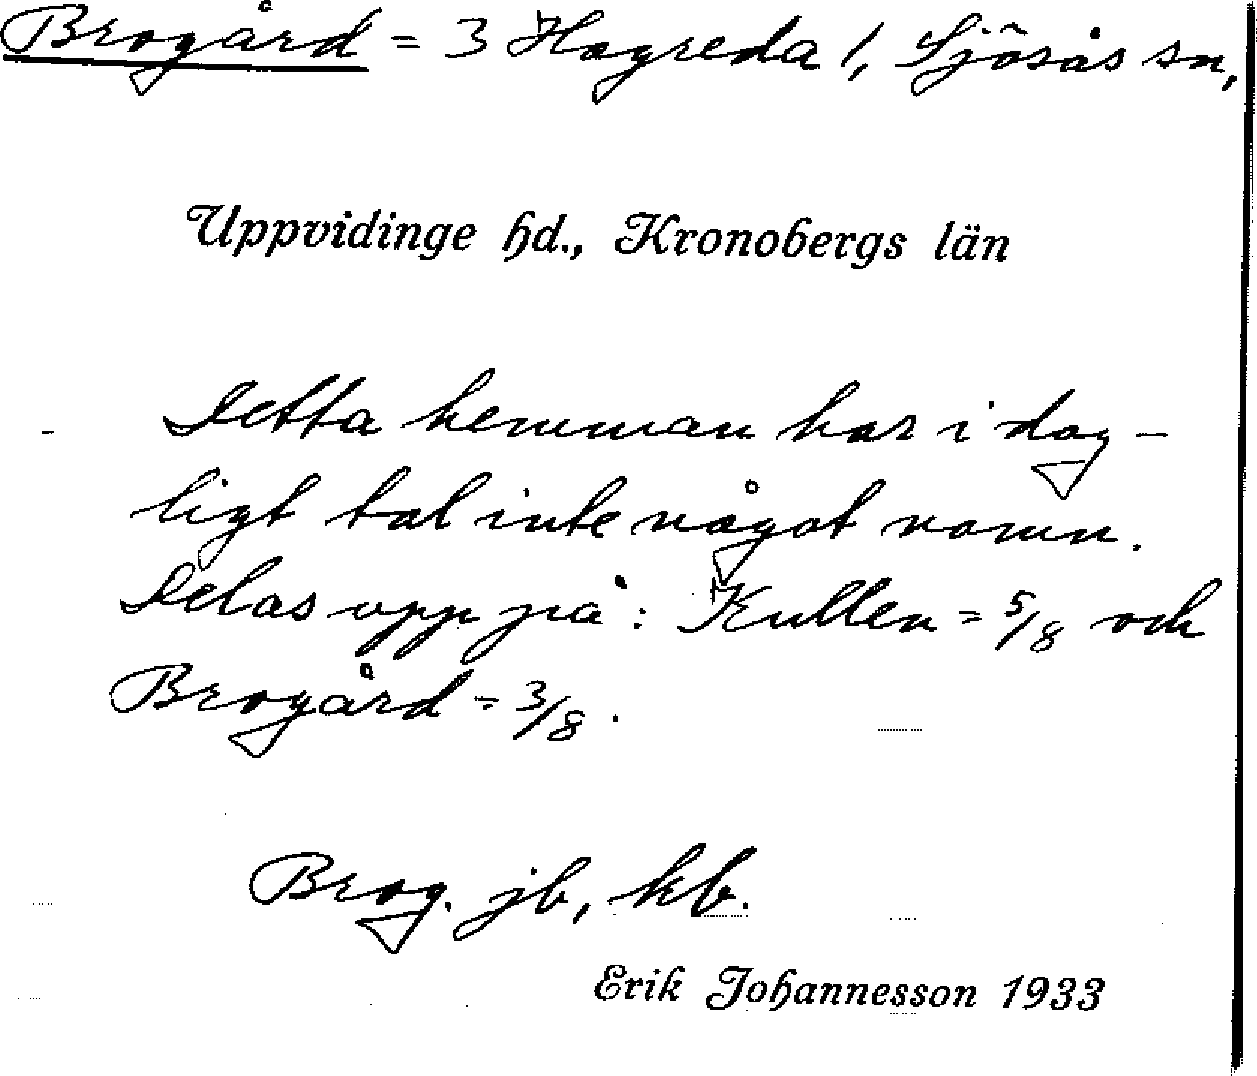 Brogård = 3 Hagreda 1, Sjösås sn,
Uppvidinge hd., Kronobergs län
Detta hemman har i dag-
ligt tal inte något namn.
Delas upp på: Kullen = 5/8 och
Brogård = 3/8.
Brog. jb, kb.
Erik Johannesson 1933